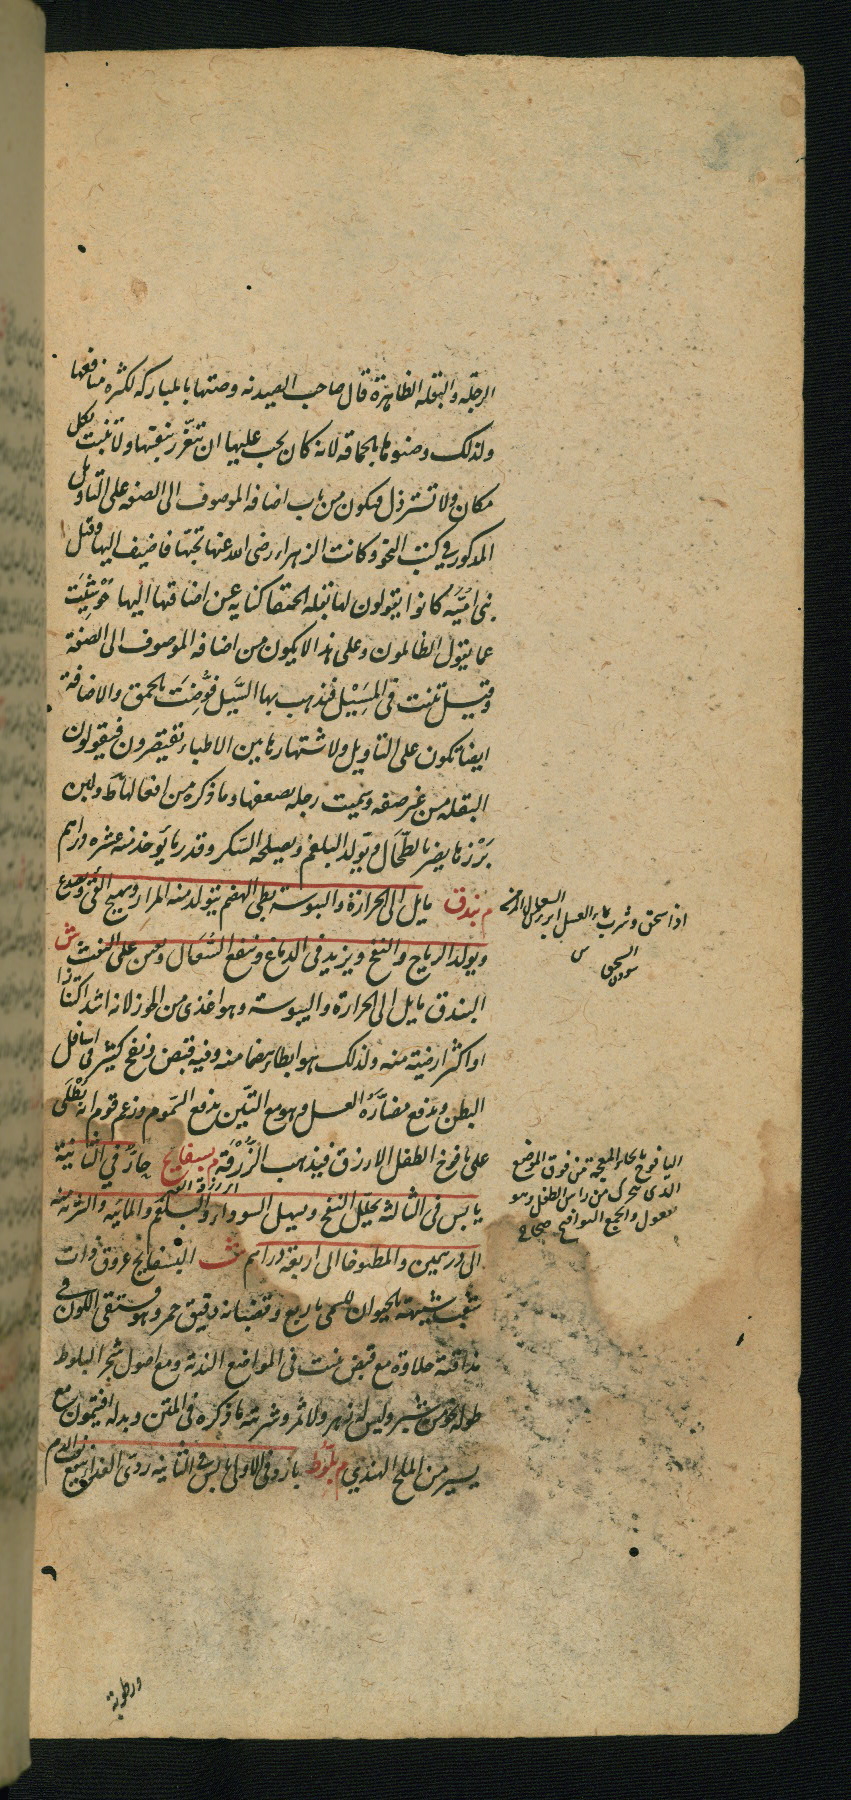 الرجله والبقله الظاهرة قال صاحب الصيدنه وصتها بالمباركه لكثره منافعها
ولذلك وصنوها بالحماقه لانه كان يجب عليها ان تتعزز بنفعتها ولا تنبت بكل
مكان ولا تسترذل فيكون من باب اضافه الموصوف الى الصفه على التاويل
المذكور فى كتب النحو وكانت الزهراء رضى الله عنها تحبها فاضيف اليها وقيل
بنى اميّه كانوا يقولون لها بقله الحمقا كنايه عن اضافتها اليها
عما يقول الظالمون وعلى هذا لا يكون من اضافه الموصوف الى الصفة
وقيل تنبت فى المسيل فيذهب بها السيل فوصفت بالحمق والاضافة
ايضا تكون على التاويل ولاشتهارها بين الاطباء تقتصرون فيقولون
البقله من غير صفه وسميت رجله لضعفها وما ذكره من افعالها ولبن
بزرها يضر بالطحال ويولد البلغم ويصلحه السكر وقدر ما يوخذ منه عشره دراهم
م بندق مايل الى الحرارة واليبوسة بطى الهضم يتولد منه المرار ويهيج القى ويصدع
ويولد الرياح والنفخ ويزيد فى الدماغ وينفع السعال ويعين على النفث ش
البندق مايل الى الحرارة واليبوسة وهو اغذى من الجوز لانه اشد اكتنازا
او اكثر ارضية منه ولذلك هو ابطاء هضما منه وفيه قبض ونفخ كثير فى اسافل
البطن ويدفع مضارّه العسل وهو مع التين يدفع السموم وزعم قوم انه يطلى
على يافوخ الطفل الازرق فيذهب الزرقة م بسفايج حارّ فى الثانية
يابس فى الثالثه يحلل النفخ ويسهل السوداء والبلغم والمائيه والشربه منه
الى درهمين والمطبوخا الى اربعة دراهم ش البسفايج عروق ذات
شعب شبيهة بالحيوان المسمى باربع وقضبانه دقيق حمر وهو فستقى اللون فى
مذاقته حلاوة مع قبض ينبت فى المواضع الندية ومع اصول شجر البلوط
طوله نحو من شبر وليس له زهر ولا ثمر وشربته ما ذكره فى المتن وبدله افتيمون مع
يسير من الملح الهندى م بلوط بارد فى الاولى يابس فى الثانيه ردى الغذا يمنع نزف الدم
اذا سحق وشرب بماء العسل ابرء السعال المزمن
اليافوخ بالخاء المعجمة من فوق الموضع
الذى يتحرك من راس الطفل وهو
يفعول والجمع اليوافيخ صحاح
ورطوبة